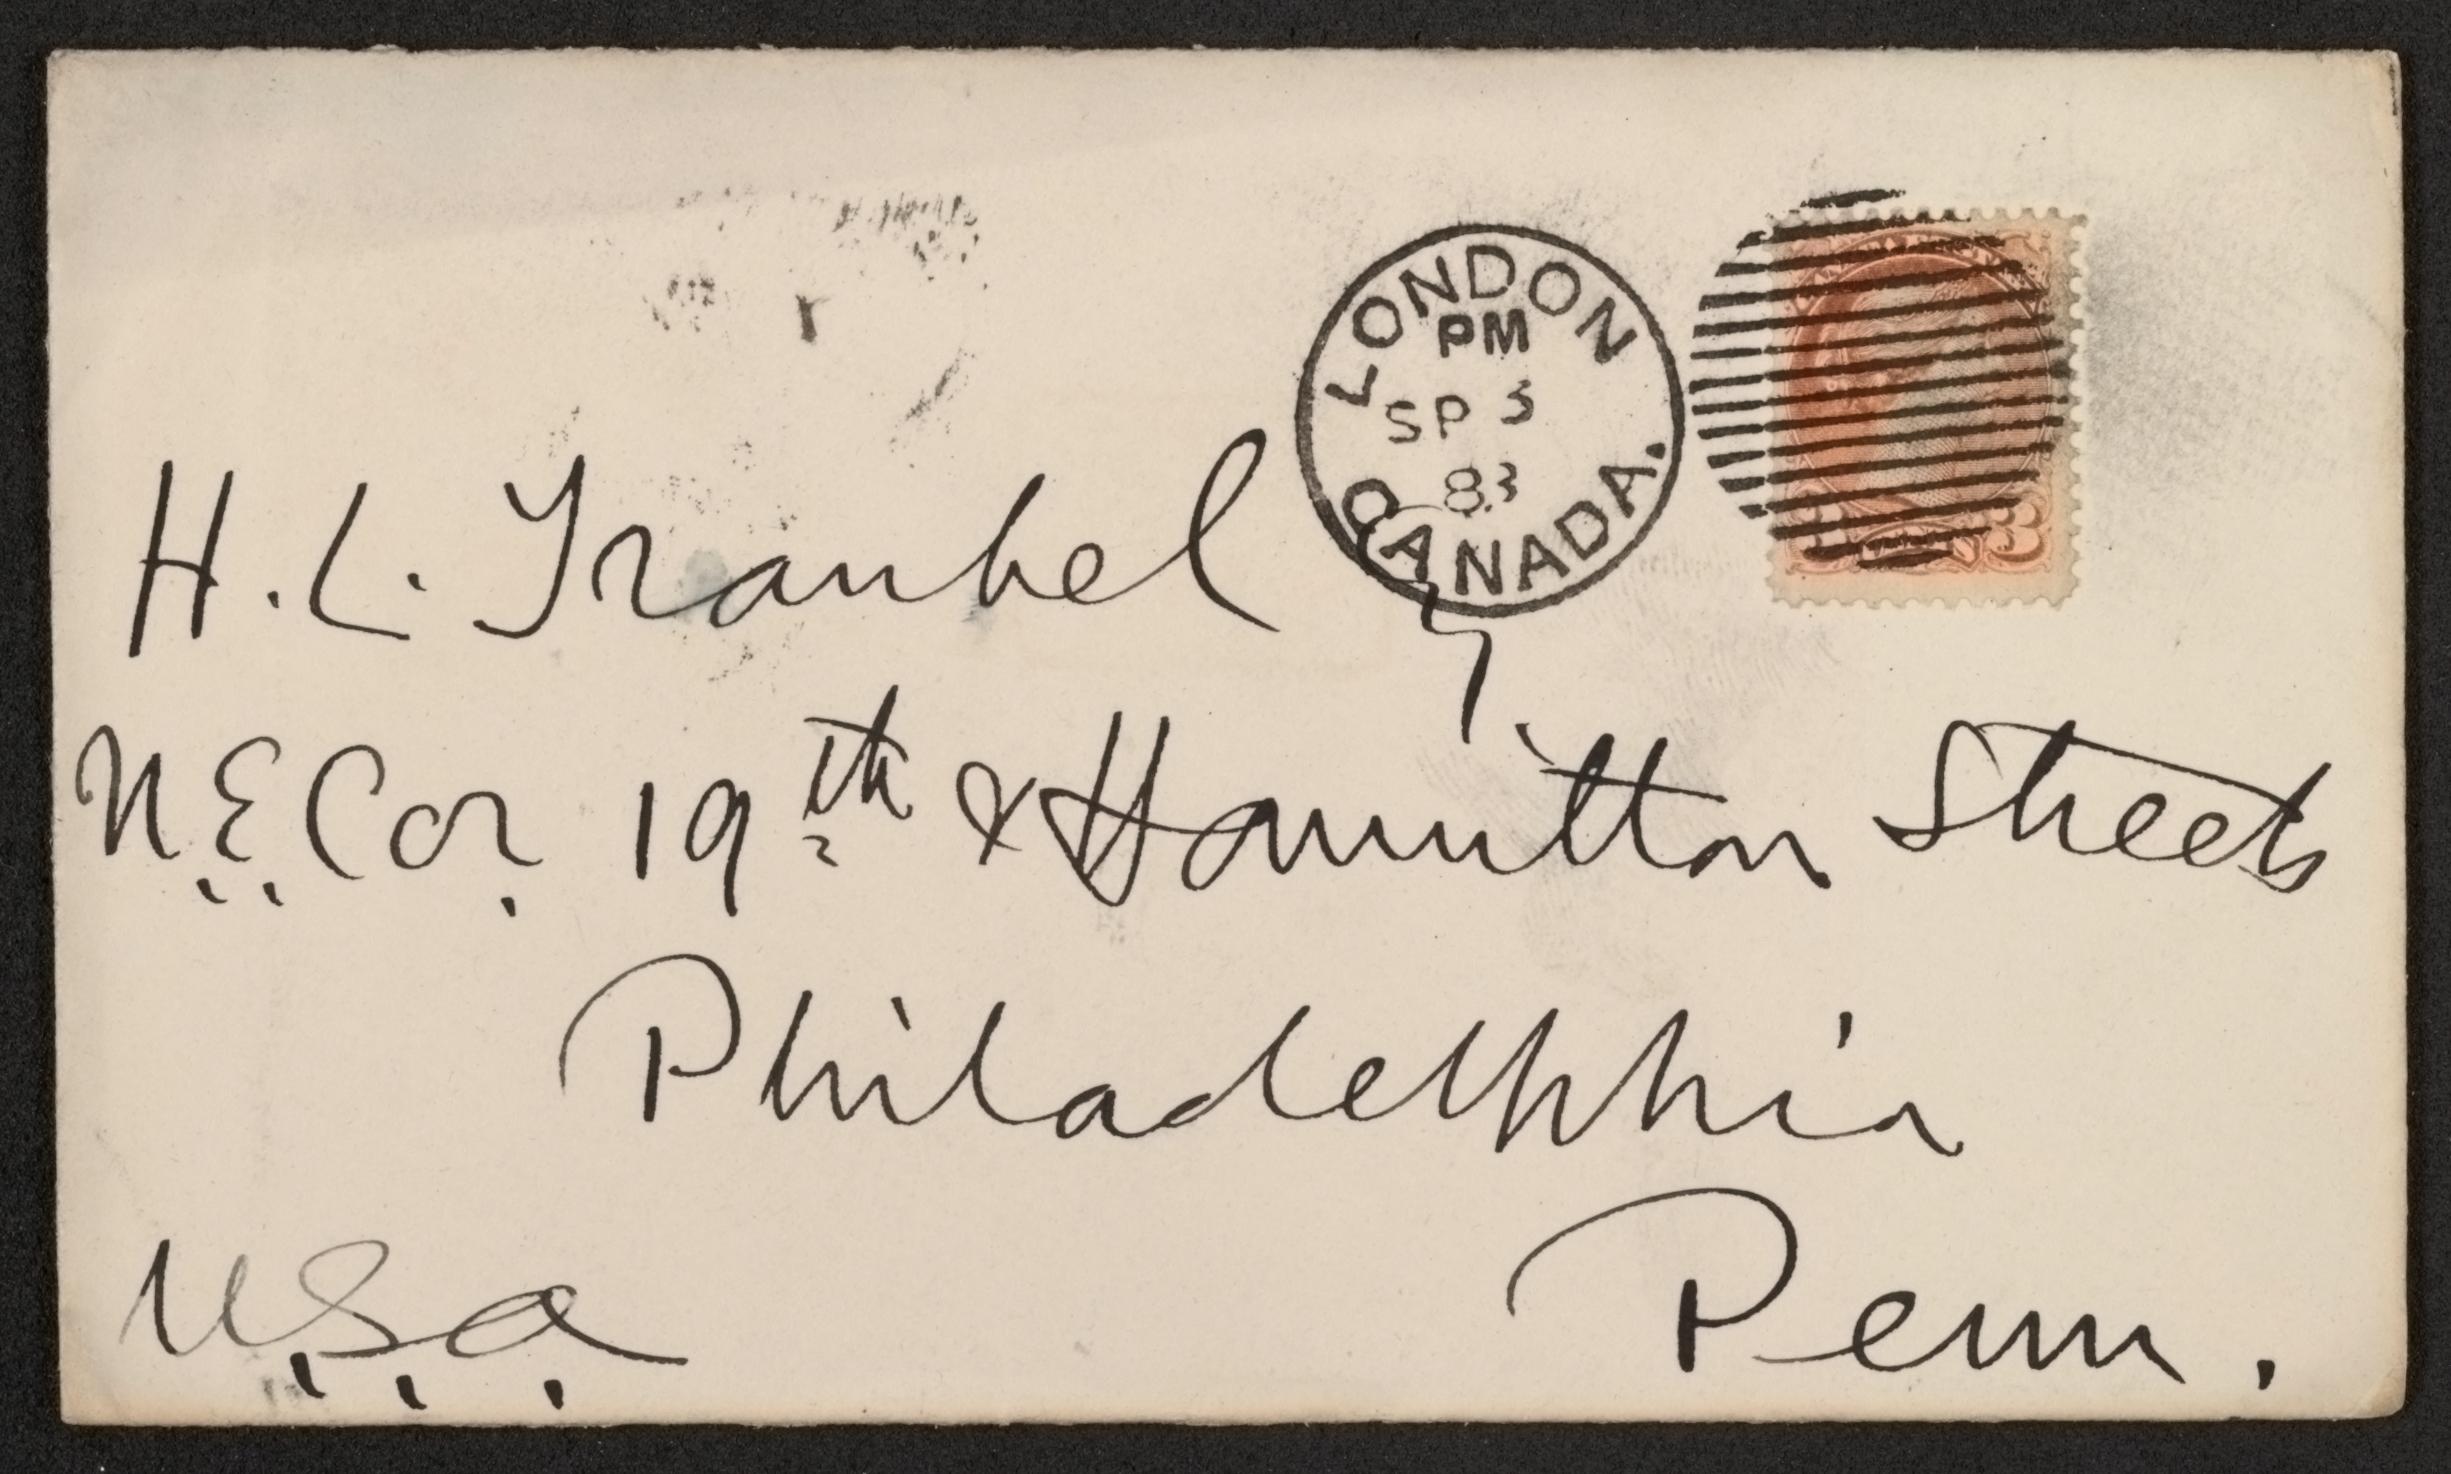 LONDON
PM
SP 3
83
CANADA.
3
H. L. Traubel
N.E. Cor. 19th & Hamilton Streets
Philadelphia
Penn.
U.S.A.